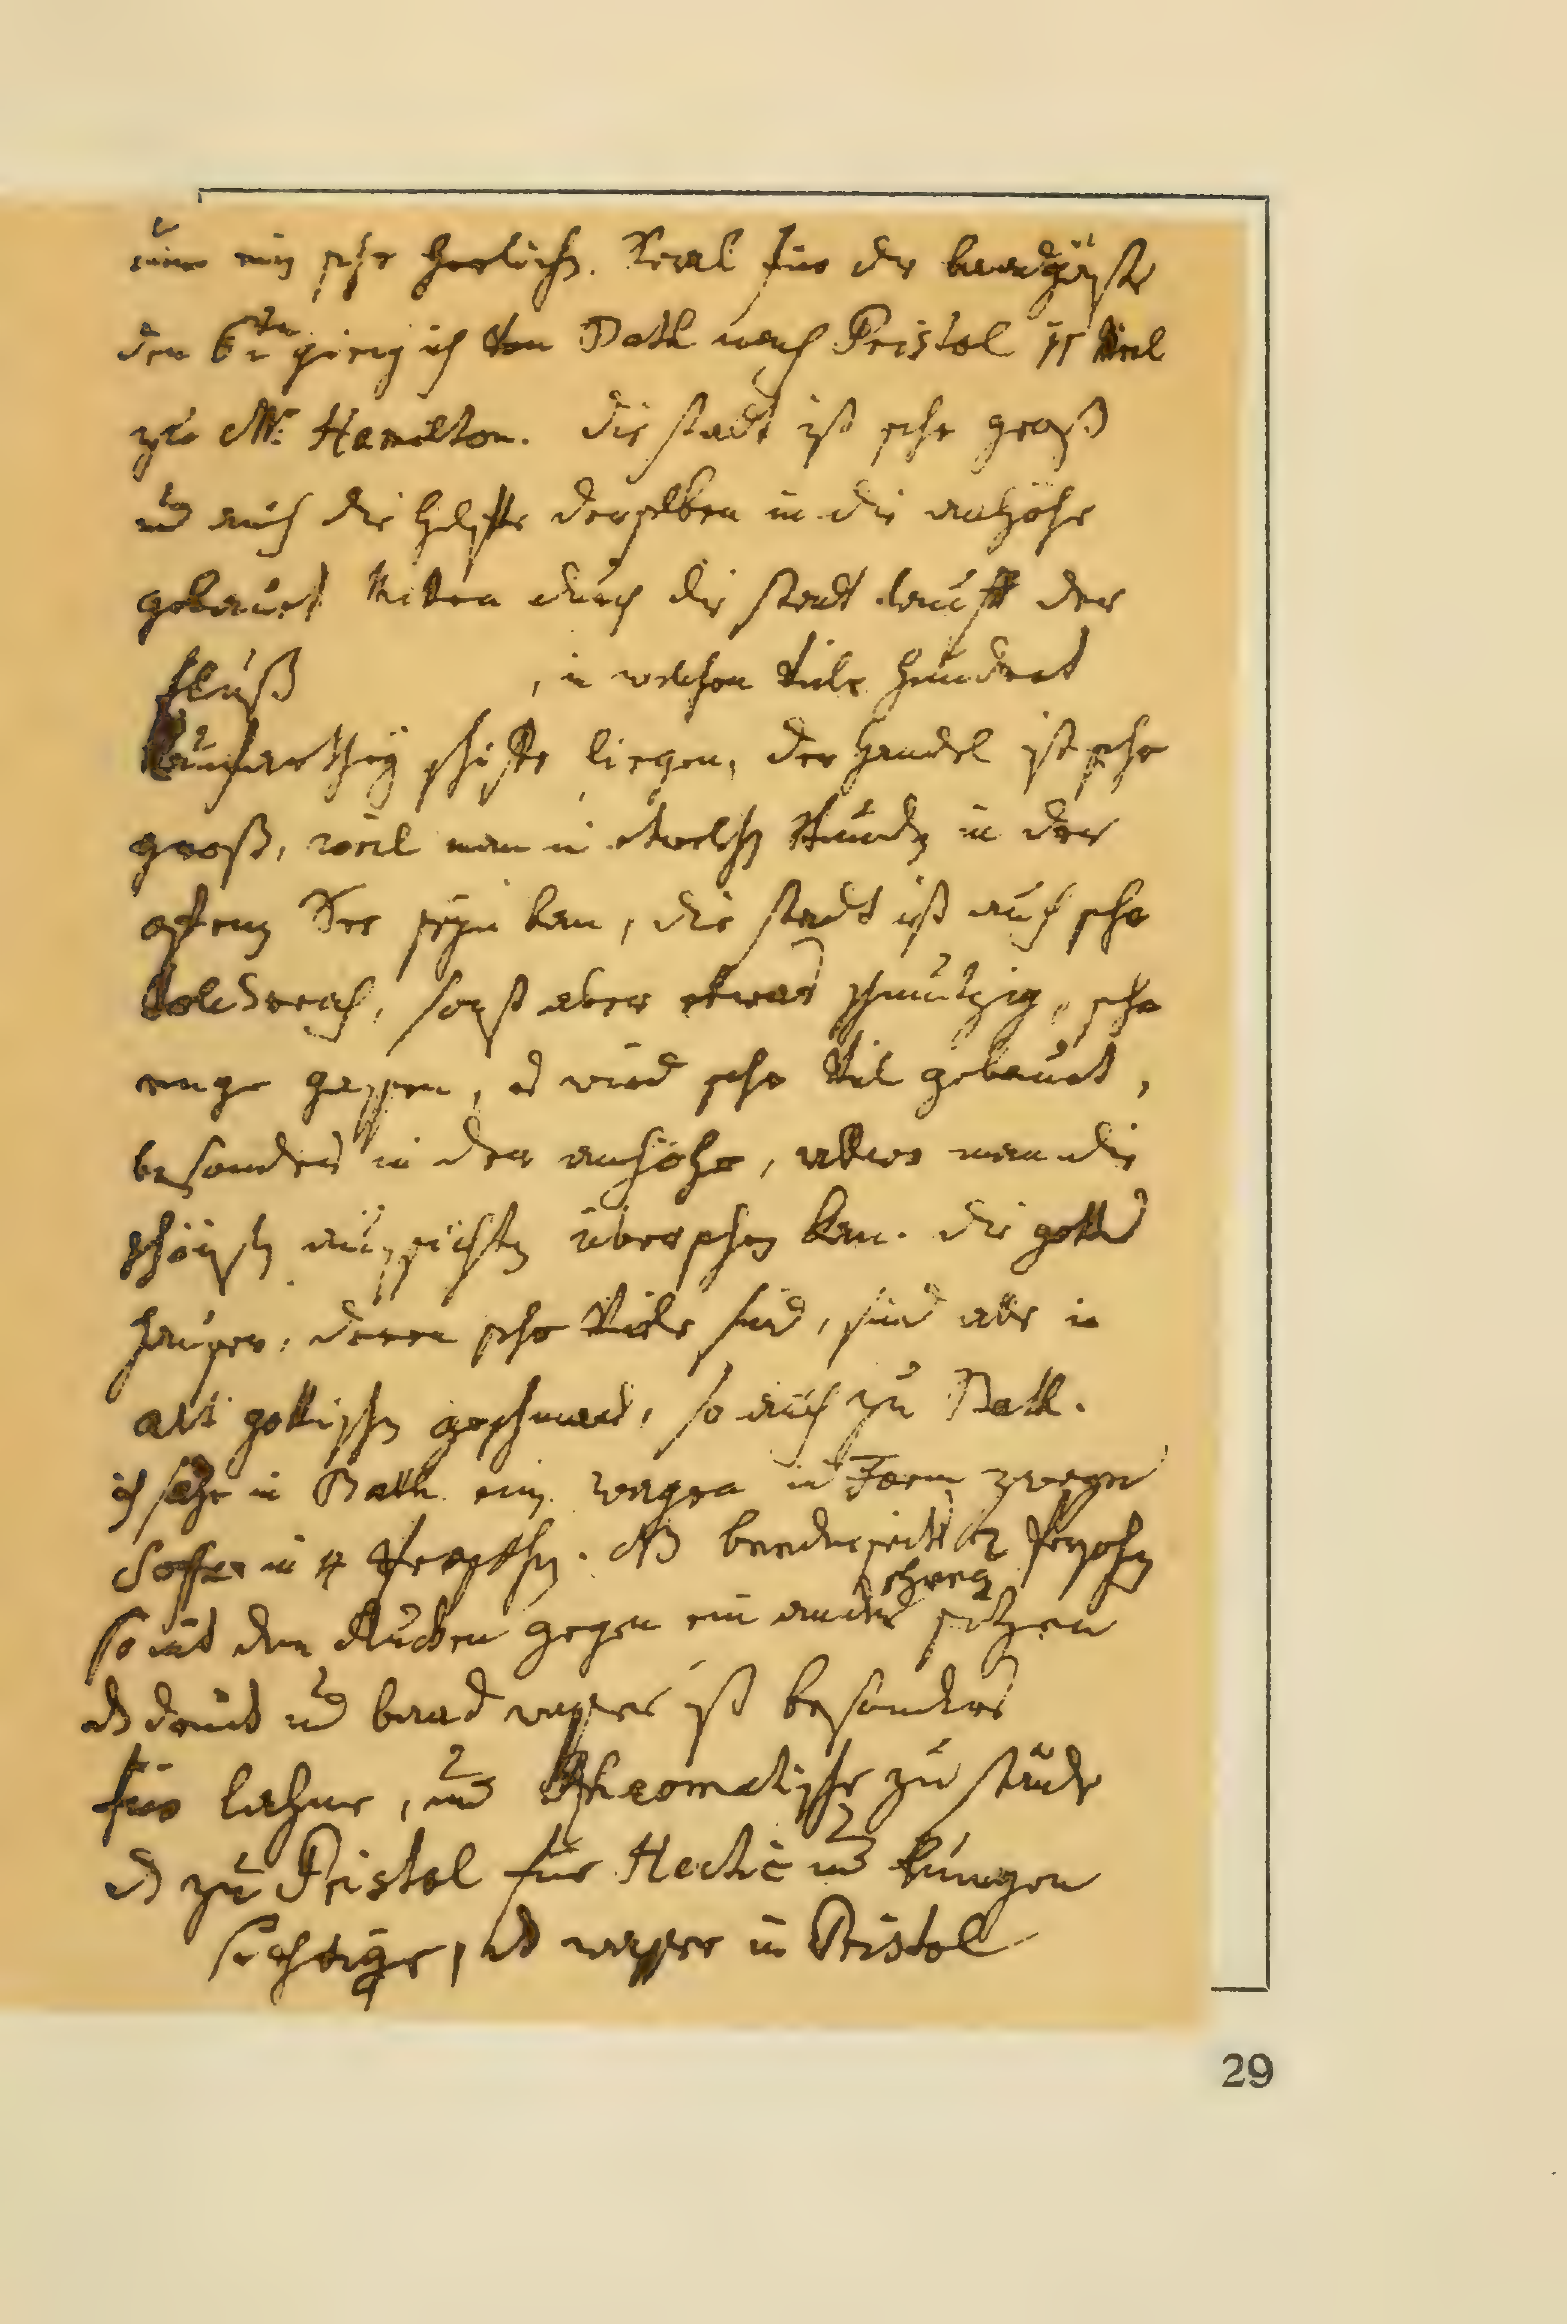 nur ein sehr herliche. Saal für der baadgäste
den 6ten gieng ich von Bath nach Pristol 11 Meil
zu Mr: Hamilton. die stadt ist sehr groß
und auch die helffte derselben in die anhöhe
gebauet Mitten durch die stadt laufft der
fluß , in welchen viele hundert
Kaufarthey schiffe liegen, der handel ist sehr
groß, weil man in etwelche stunde in der
offene See seyn kan, die stadt ist auch sehr
volckreich, sonst aber etwas schmutzig, sehr
enge gassen, es wird sehr viel gebauet,
besonders in der anhöhe, allwo man die
schönste aussichten übersehen kan. die gotts
häuser, deren sehr viele sind, sind alle in
alt gottischen geschmack, so auch zu Bath.
ich sahe in Bath ein wagen in Form zweyer
Soffen in 4 . das beederseits 2 Persohn
schreg
so mit den Rucken gegen ein ander sitzen
das drinck und baad wasser ist besonders
für lahme, und Rheomatische zu stände
das zu Pristol für Hectic und Lungen
süchtige, das wasser in Pristol